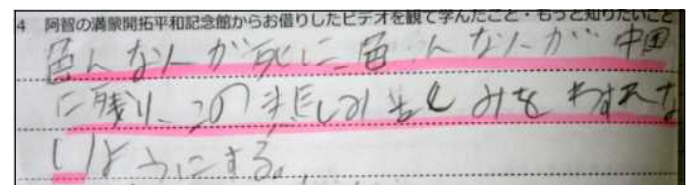 4 阿智の満蒙開拓平和記念館からお借りしたビデオを観て学んだこと・もっと知りたいこと
色んな人が死に、色んな人が中国
に残り、この悲しみ苦しみをわすれな
いようにする。